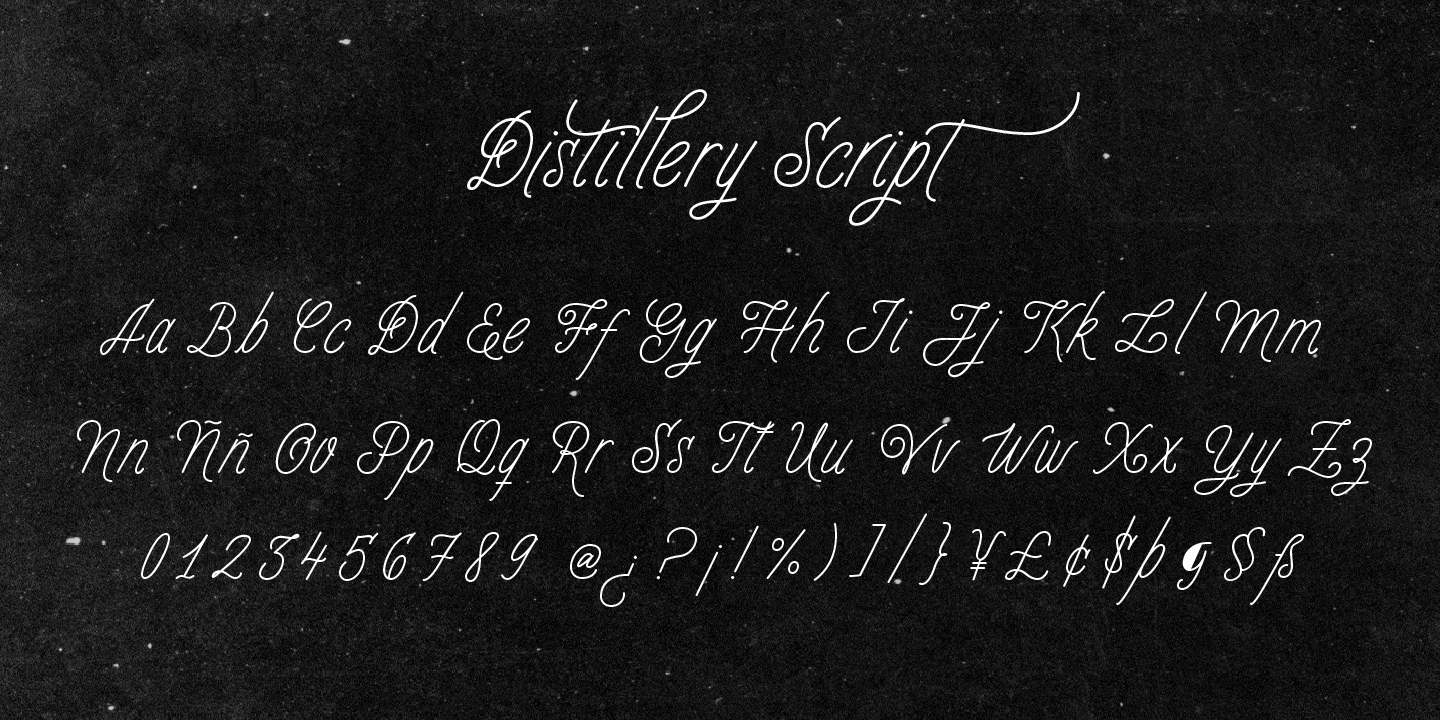 Distillery Script
Aa Bb Cc Dd Ee Ff Gg Hh Ii Jj Kk Ll Mm
Nn Ññ Oo Pp Qq Rr Ss Tt Uu Vv Ww Xx Yy Zz
0 1 2 3 4 5 6 7 8 9 @ ¿ ? ¡ ! % ) ] / } ¥ £ ¢ $ þ ¶ § ß